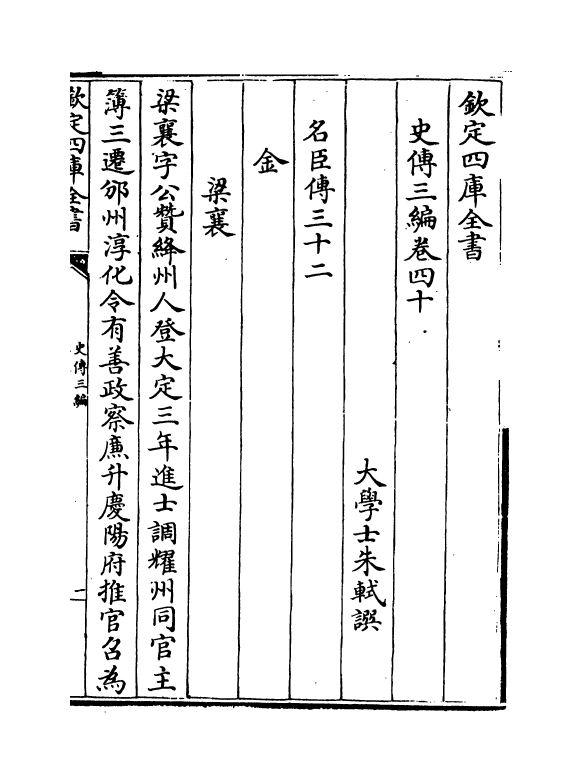 欽定四庫全書
史傳三編卷四十
大學士朱軾譔
名臣傳三十二
金
梁襄
梁襄字公贊絳州人登大定三年進士調耀州同官主
簿三遷邠州淳化令有善政察廉升慶陽府推官召為
欽定四庫全書
史傳三編